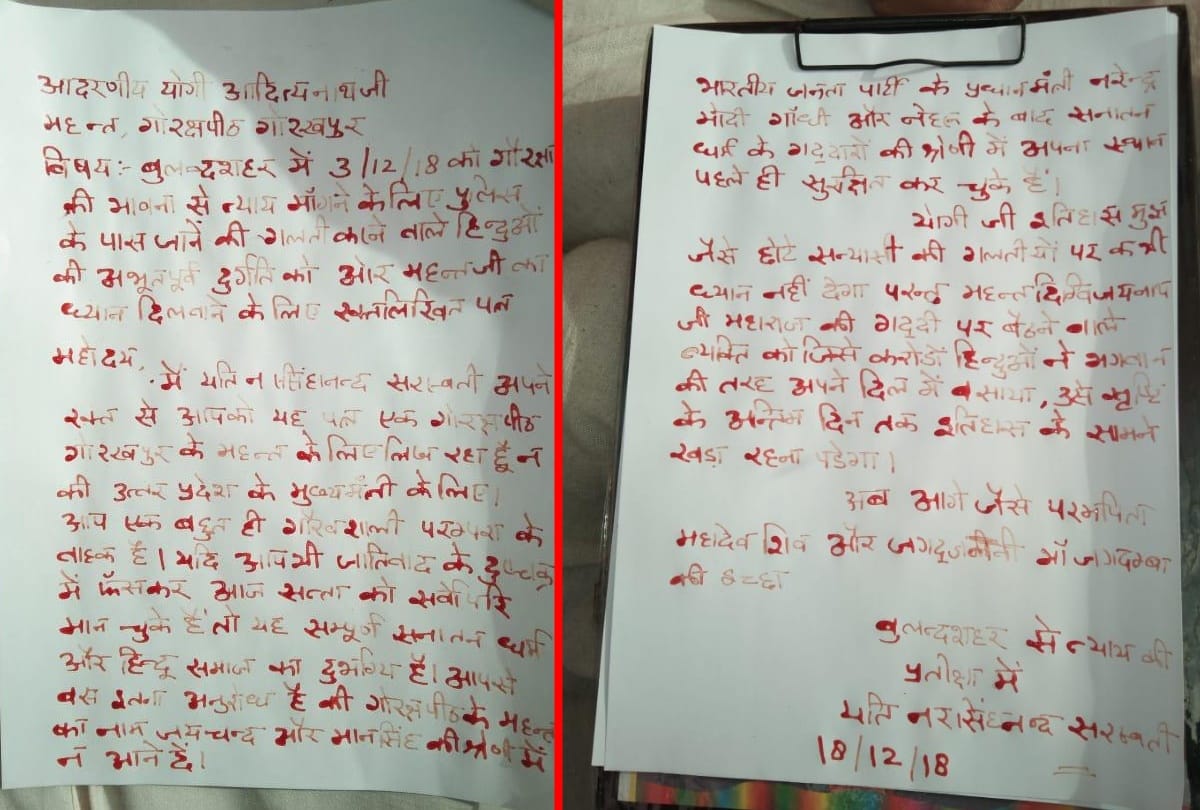 आदरणीय योगी आदित्यनाथ जी
महन्त, गोरक्षपीठ गोरखपुर
विषय:- बुलन्दशहर में 3/12/18 को गौरक्षा
की भावना से न्याय माँगने के लिए पुलिस
के पास जाने की गलती करने वाले हिन्दुओं
की अभूतपूर्व दुर्गति की ओर महन्त जी का
ध्यान दिलवाने के लिए रक्तलिखित पत्र
महोदय,
मैं यति नरसिंहानन्द सरस्वती अपने
रक्त से आपको यह पत्र एक गोरक्षपीठ
गोरखपुर के महन्त के लिए लिख रहा हूँ न
की उत्तर प्रदेश के मुख्यमंत्री के लिए।
आप एक बहुत ही गौरवशाली परम्परा के
वाहक हैं। यदि आप भी जातिवाद के दुष्चक्र
में फँसकर आज सत्ता को सर्वोपरि
मान चुके हैं तो यह सम्पूर्ण सनातन धर्म
और हिन्दू समाज का दुर्भाग्य है। आपसे
बस इतना अनुरोध है की गोरक्षपीठ के महन्त
का नाम जयचन्द और मानसिंह की श्रेणी में
न आने दें।
भारतीय जनता पार्टी के प्रधानमंत्री नरेन्द्र
मोदी गाँधी और नेहरू के बाद सनातन
धर्म के गद्दारों की श्रेणी में अपना स्थान
पहले ही सुरक्षित कर चुके हैं।
योगी जी इतिहास मुझ
जैसे छोटे सन्यासी की गलतीयों पर कभी
ध्यान नहीं देगा परन्तु महन्त दिग्विजयनाथ
जी महाराज की गद्दी पर बैठने वाले
व्यक्ति को जिसे करोडों हिन्दुओं ने भगवान
की तरह अपने दिल में बसाया, उसे सृष्टि
के अन्तिम दिन तक इतिहास के सामने
खड़ा रहना पडेगा।
अब आगे जैसे परमपिता
महादेव शिव और जगद्जननी माँ जगदम्बा
की इच्छा
बुलन्दशहर से न्याय की
प्रतीक्षा में
यति नरसिंहानन्द सरस्वती
18/12/18